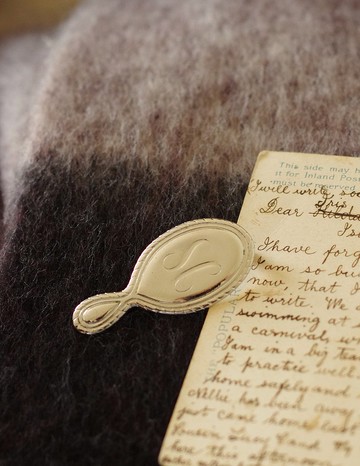 This side may h
it for Inland Pos
must be reserved
I will write so
Iris
Dear
I have forg
I am so bus
now, that I
to write. We
swimming at
a carnival
I am in a big tea
to practice well
home safely and
Nellie has been away
just came home last
Cousin Lucy and
here this afternoon
POPULA
N